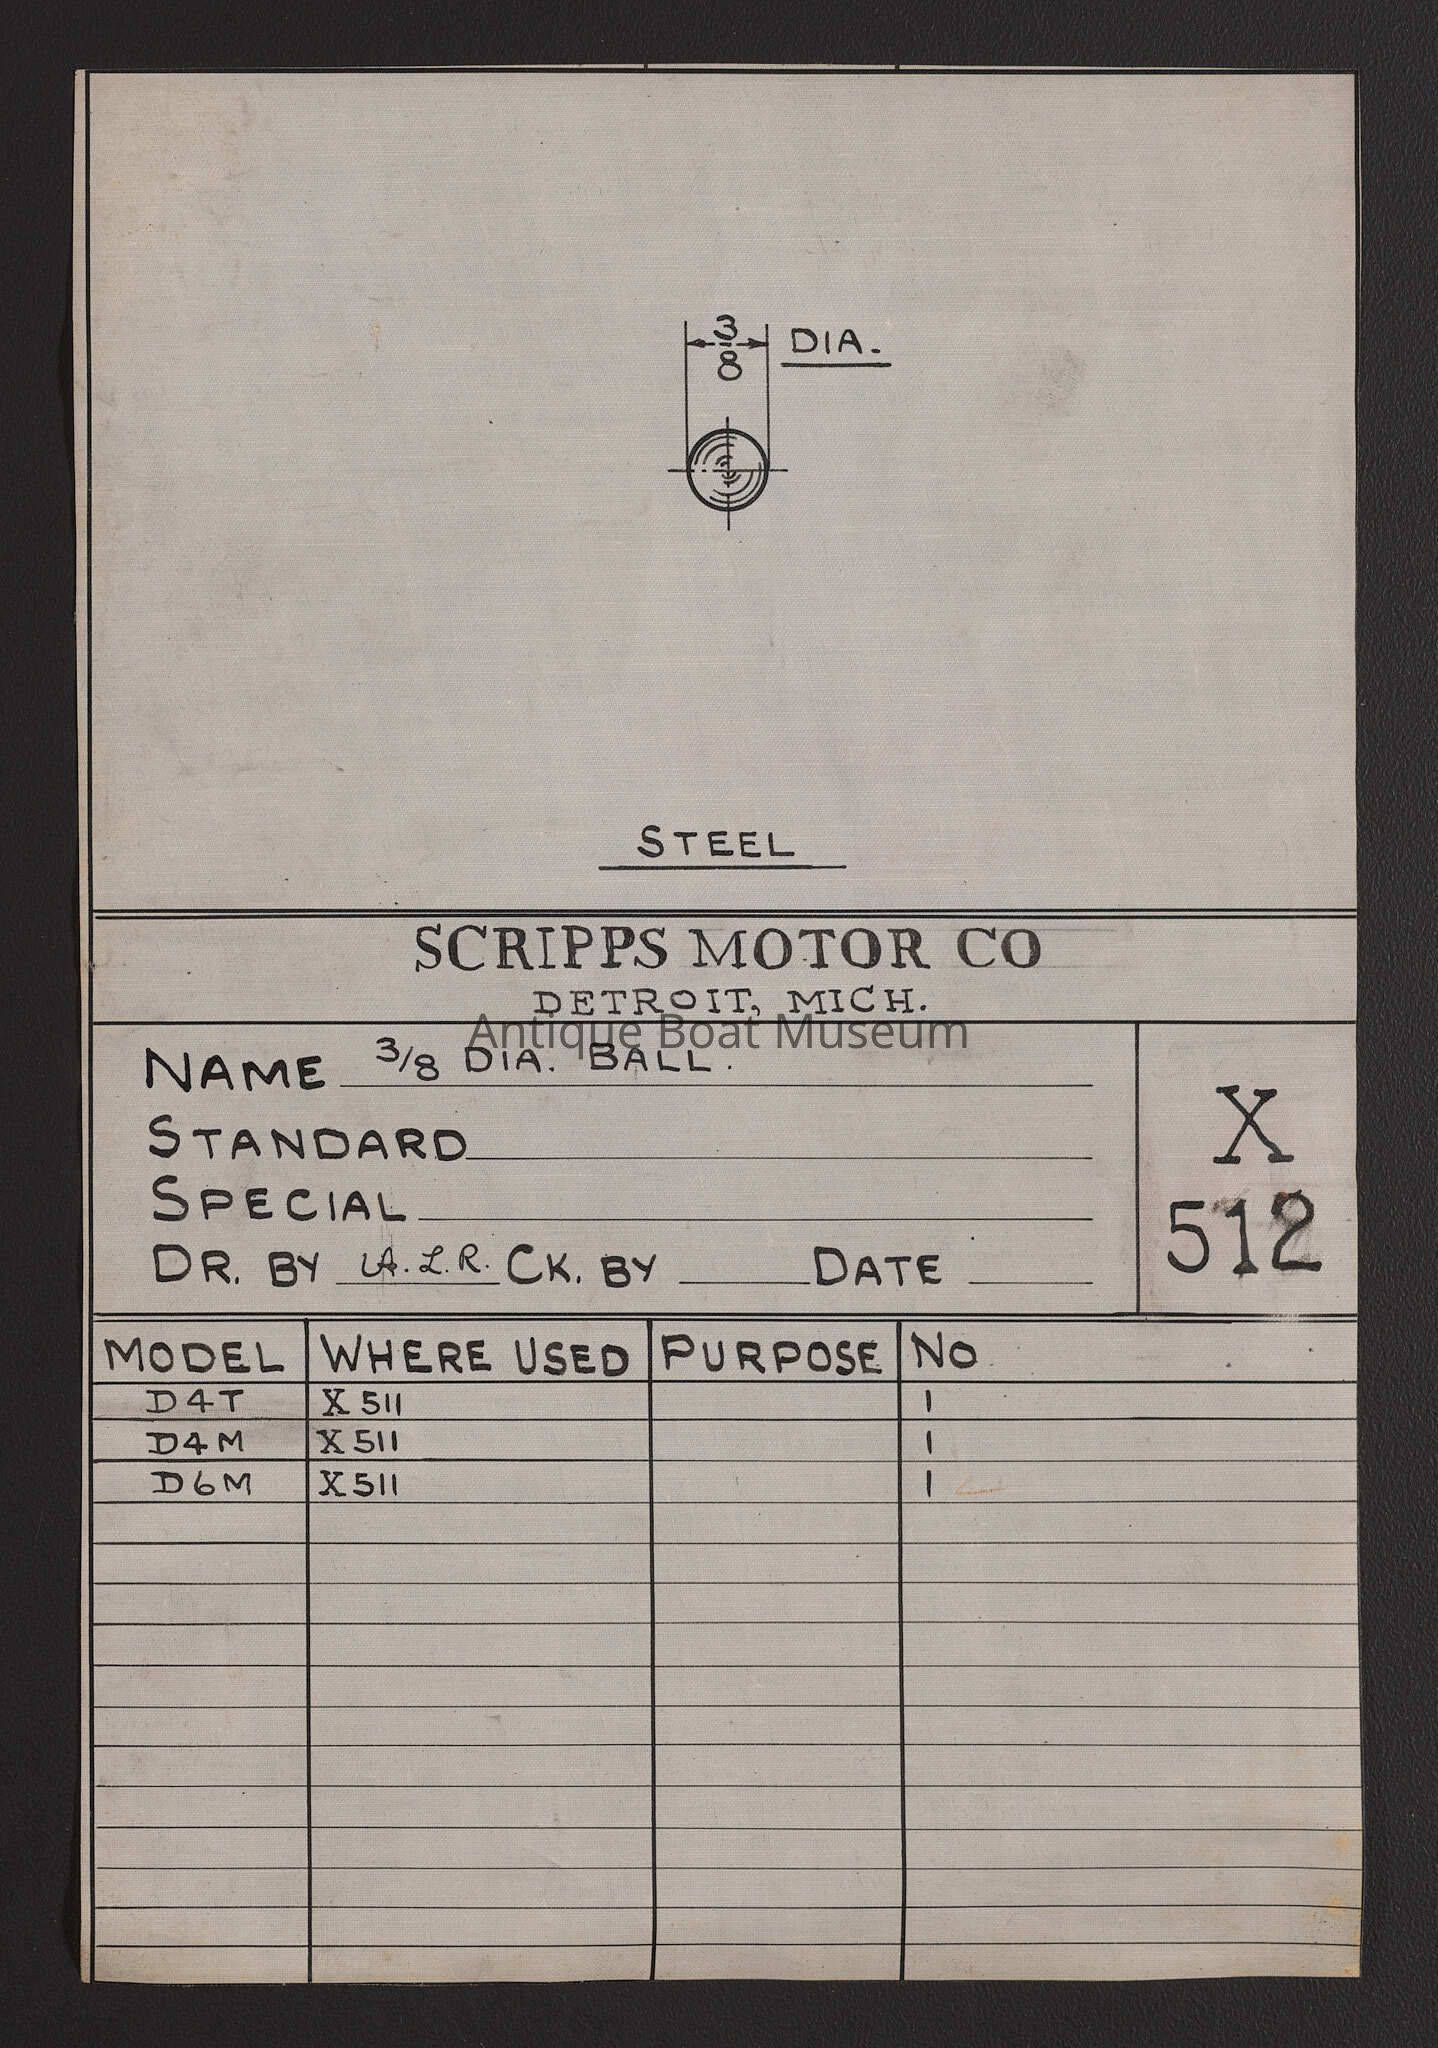 3/8 DIA.
STEEL
SCRIPPS MOTOR CO
DETROIT, MICH.
Antique Boat Museum
NAME 3/8 DIA. BALL.
STANDARD
SPECIAL
DR. BY A.L.R. CK. BY DATE
X
512
MODEL WHERE USED PURPOSE NO
D4T X511 1
D4M X511 1
D6M X511 1